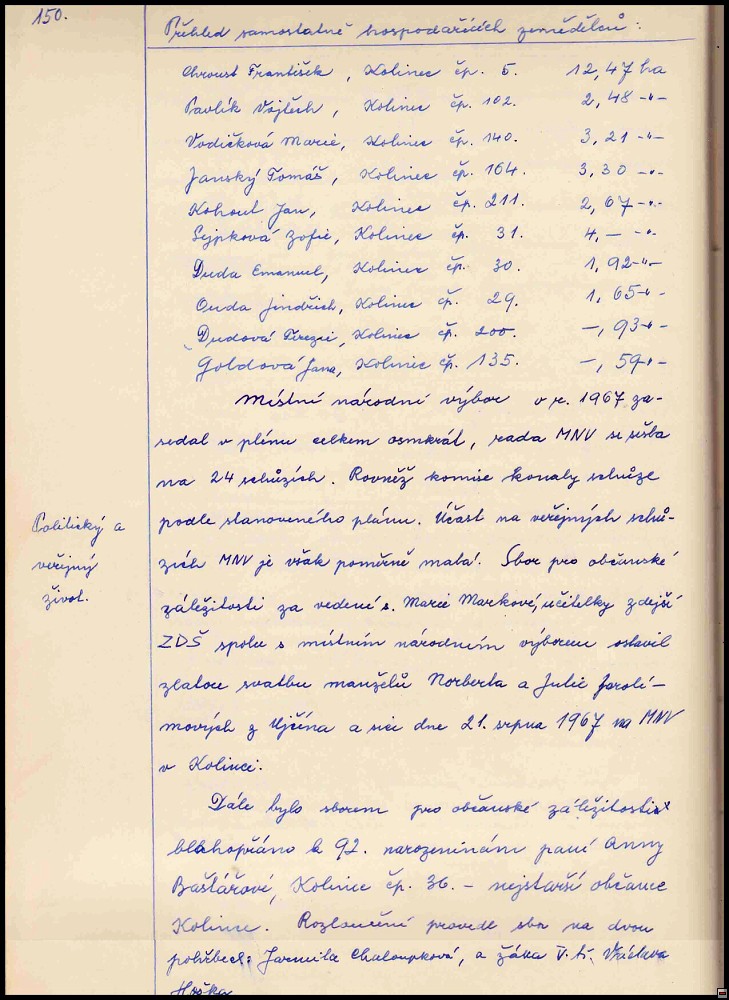 150.
Přehled samostatně hospodařících zemědělců:
Chroust František, Kolinec čp. 5. 12,47 ha
Pavlík Vojtěch, Kolinec čp. 102. 2,48 -"-
Vodičková Marie, Kolinec čp. 140. 3,21 -"-
Janský Tomáš, Kolinec čp. 164. 3,30 -"-
Kohout Jan, Kolinec čp. 211. 2,67 -"-
Sejpková Žofie, Kolinec čp. 31. 4,— -"-
Duda Emanuel, Kolinec čp. 30. 1,92 -"-
Duda Jindřich, Kolinec čp. 29. 1,65 -"-
Dudová Terezie, Kolinec čp. 200. —,93 -"-
Goldová Jana, Kolinec čp. 135. —,59 -"-
Místní národní výbor v r. 1967 za-
sedal v plénu celkem osmkrát, rada MNV se sešla
na 24 schůzích. Rovněž komise konaly schůze
podle stanoveného plánu. Účast na veřejných schů-
zích MNV je však poměrně malá. Sbor pro občanské
Politický a
veřejný
život.
záležitosti za vedení s. Marie Markové, učitelky zdejší
ZDŠ spolu s místním národním výborem oslavil
zlatou svatbu manželů Norberta a Julie Jarolí-
mových z Ujčína a sice dne 21. srpna 1967 na MNV
v Kolinci.
Dále bylo sborem pro občanské záležitosti
blahopřáno k 92. narozeninám paní Anny
Baštářové, Kolinec čp. 36. - nejstarší občance
Kolince. Rozloučení provedl sbor na dvou
pohřbech: Jarmila Chaloupková, a žáka V. tř. Václava
Hoška